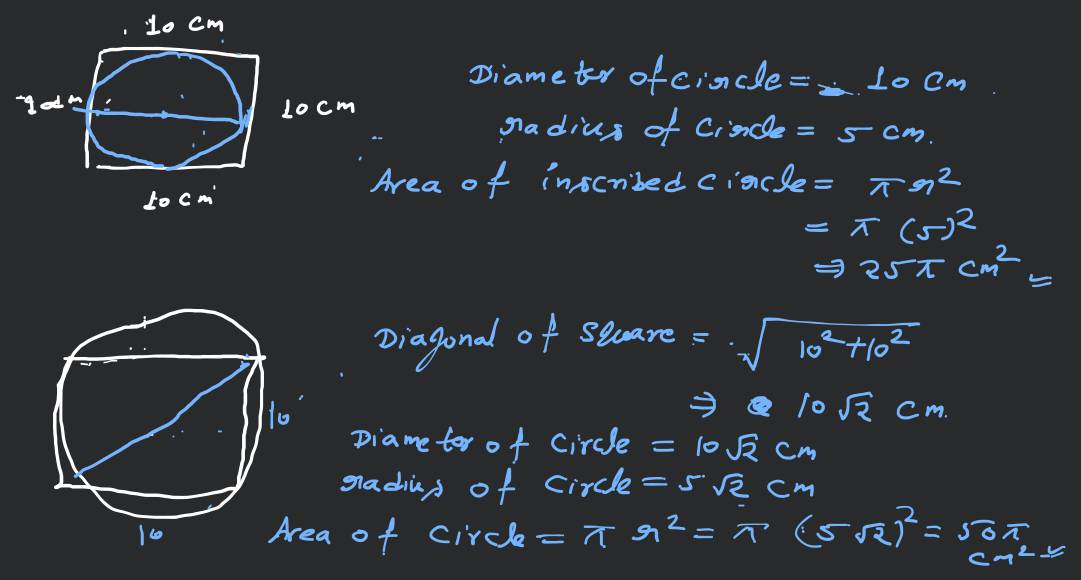 10 cm
Diameter of circle = 10 cm
10 cm
radius of circle = 5 cm.
10 cm
Area of inscribed circle = πr²
= π (5)²
⇒ 25π cm²
Diagonal of square = √10²+10²
⇒ 10√2 cm.
10
Diameter of circle = 10√2 cm
radius of circle = 5√2 cm
10
Area of circle = πr² = π (5√2)² = 50π
cm²